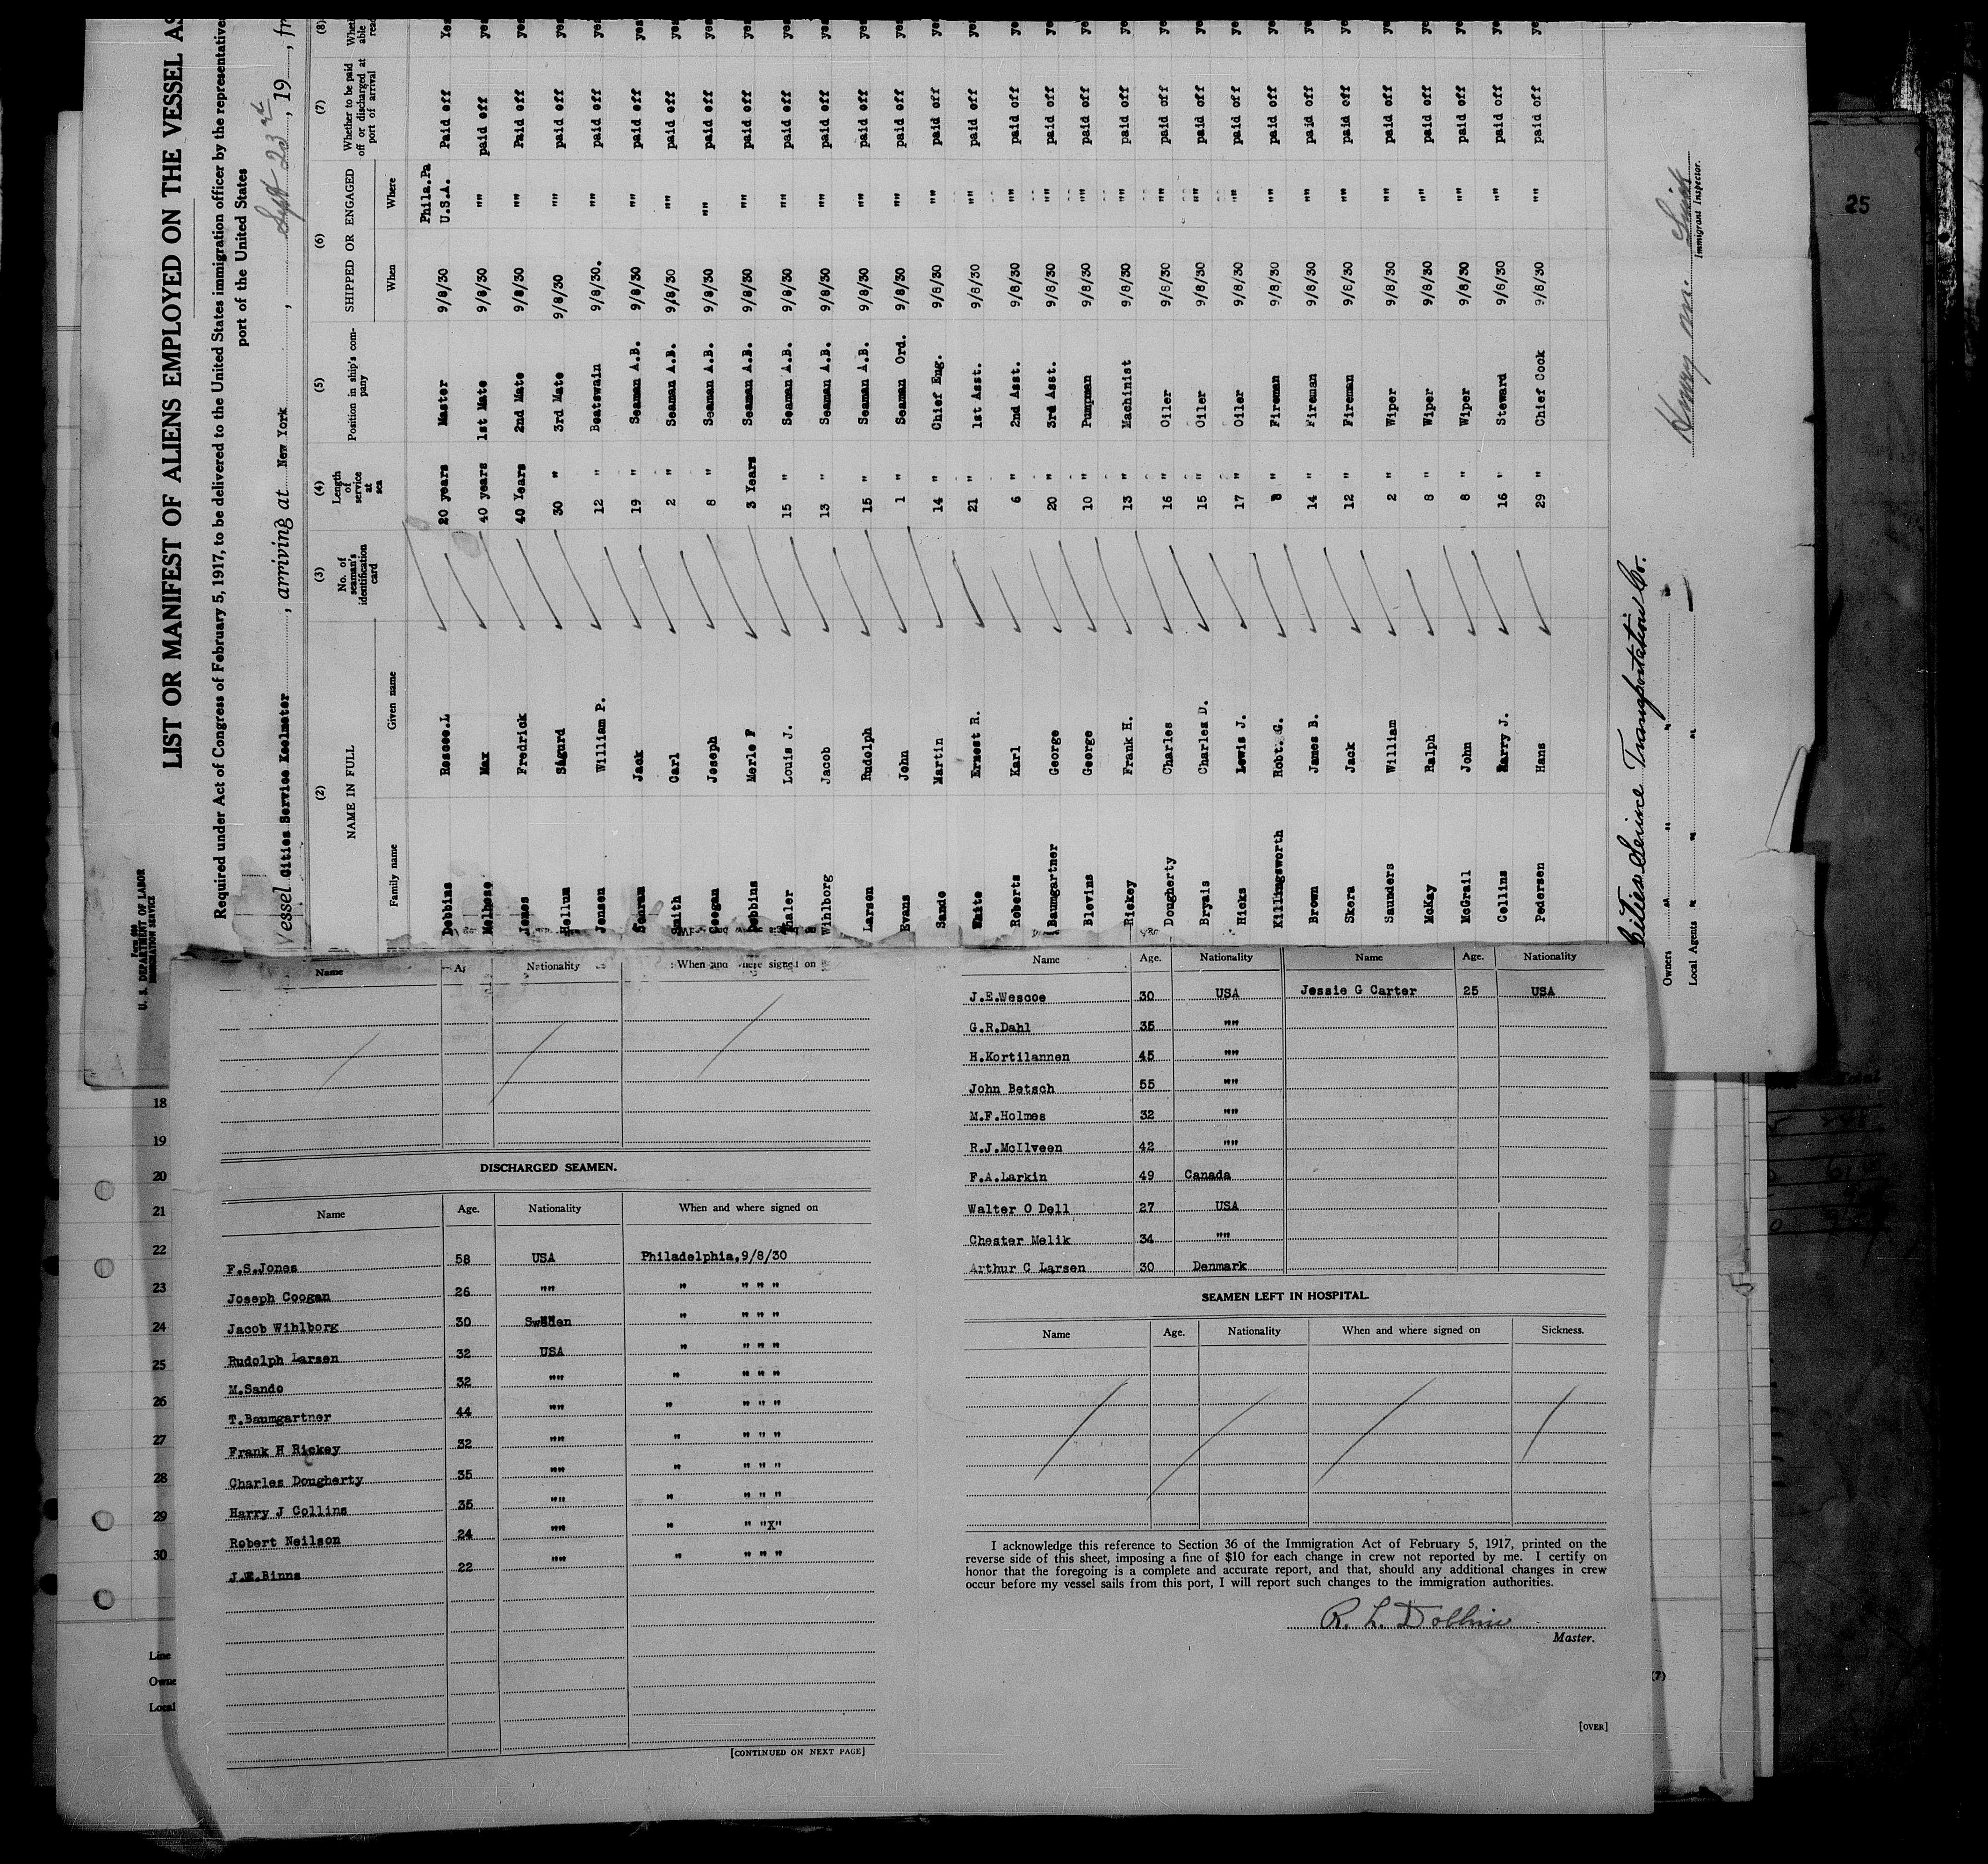 LIST OR MANIFEST OF ALIENS EMPLOYED ON THE VESSEL AS
Required under Act of Congress of February 5, 1917, to be delivered to the United States immigration officer by the representative
port of the United States
Form 680
U. S. DEPARTMENT OF LABOR
IMMIGRATION SERVICE
Vessel Cities Service Koolmotor, arriving at New York, Sept 23rd, 19, fr
(2) (3) (4) (5) (6) (7) (8)
NAME IN FULL No. of seaman's identification card Length of service at sea Position in ship's company SHIPPED OR ENGAGED Whether to be paid off or discharged at port of arrival
Family name Given name When Where
Phila.Pa
Dobbins Roscoe.L 20 years Master 9/8/30 U.S.A. Paid off Yes
Melhose Max 40 years 1st Mate 9/8/30 "" paid off yes
Jones Fredrick 40 Years 2nd Mate 9/8/30 "" Paid off yes
Hellum Sigurd 30 " 3rd Mate 9/8/30 "" paid off yes
Jensen William P. 12 " Boatswain 9/8/30. "" paid off yes
Jack 19 " Seaman A.B. 9/8/30 "" paid off yes
Smith Carl 2 " Seaman A.B. 9/8/30 "" paid off yes
Coogan Joseph 8 " Seaman A.B. 9/8/30 "" paid off yes
Dobbins Merle F 3 Years Seaman A.B. 9/8/30 "" paid off yes
Thaler Louis J. 15 " Seaman A.B. 9/8/30 "" paid off yes
Wihlborg Jacob 13 " Seaman A.B. 9/8/30 "" paid off yes
Larsen Rudolph 15 " Seaman A.B. 9/8/30 "" paid off yes
Evans John 1 " Seaman Ord. 9/8/30 "" paid off yes
Sande Martin 14 " Chief Eng. 9/8/30 "" paid off ye
White Ernest R. 21 " 1st Asst. 9/8/30 "" paid off ye
Roberts Karl 6 " 2nd Asst. 9/8/30 "" paid off ye
Baumgartner George 20 " 3rd Asst. 9/8/30 "" paid off ye
Blevins George 10 " Pumpman 9/8/30 "" paid off ye
Rickey Frank H. 13 " Machinist 9/8/30 "" paid off ye
Dougherty Charles 16 " Oiler 9/8/30 "" paid off ye
Bryais Charles D. 15 " Oiler 9/8/30 "" paid off ye
Hicks Lewis J. 17 " Oiler 9/8/30 "" paid off ye
Killingsworth Robt. G. 8 " Fireman 9/8/30 "" paid off ye
Brown James B. 14 " Fireman 9/8/30 "" paid off ye
Skora Jack 12 " Fireman 9/8/30 "" paid off ye
Saunders William 2 " Wiper 9/8/30 "" paid off ye
McKay Ralph 8 " Wiper 9/8/30 "" paid off ye
McGrail John 8 " Wiper 9/8/30 "" paid off ye
Collins Harry J. 16 " Steward 9/8/30 "" paid off ye
Pedersen Hans 29 " Chief Cook 9/8/30 "" paid off ye
Cities Service Transportation Co.
Owners " " "
Local Agents " " "
Immigrant Inspector.
25
Name Nationality When and where signed on
DISCHARGED SEAMEN.
Name Age. Nationality When and where signed on
F.S.Jones 58 USA Philadelphia,9/8/30
Joseph Coogan 26 "" " " " "
Jacob Wihlborg 30 Sweden " " " "
Rudolph Larsen 32 USA " " " "
M.Sando 32 "" " " " "
T.Baumgartner 44 "" " " " "
Frank H Rickey 32 "" " " " "
Charles Dougherty 35 "" " " " "
Harry J Collins 35 "" " " " "
Robert Neilson 24 "" " " "X"
J.E.Binns 22 "" " " " "
[CONTINUED ON NEXT PAGE]
Name Age. Nationality Name Age. Nationality
J.E.Wescoe 30 USA Jessie G Carter 25 USA
G.R.Dahl 35 ""
H.Kortilannen 45 ""
John Betsch 55 ""
M.F.Holmes 32 ""
R.J.McIlveen 42 ""
F.A.Larkin 49 Canada
Walter O Dell 27 USA
Chester Melik 34 ""
Arthur C Larsen 30 Denmark
SEAMEN LEFT IN HOSPITAL.
Name Age. Nationality When and where signed on Sickness.
I acknowledge this reference to Section 36 of the Immigration Act of February 5, 1917, printed on
reverse side of this sheet, imposing a fine of $10 for each change in crew not reported by me. I certify on
honor that the foregoing is a complete and accurate report, and that, should any additional changes in crew
occur before my vessel sails from this port, I will report such changes to the immigration authorities.
R. L. Dobbins
Master.
[OVER]
18
19
20
21
22
23
24
25
26
27
28
29
30
Line
Owne
Local
(7)